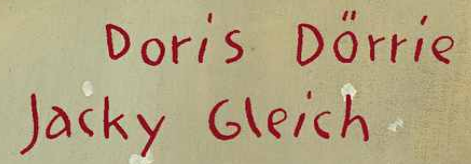 Doris Dörrie
Jacky Gleich